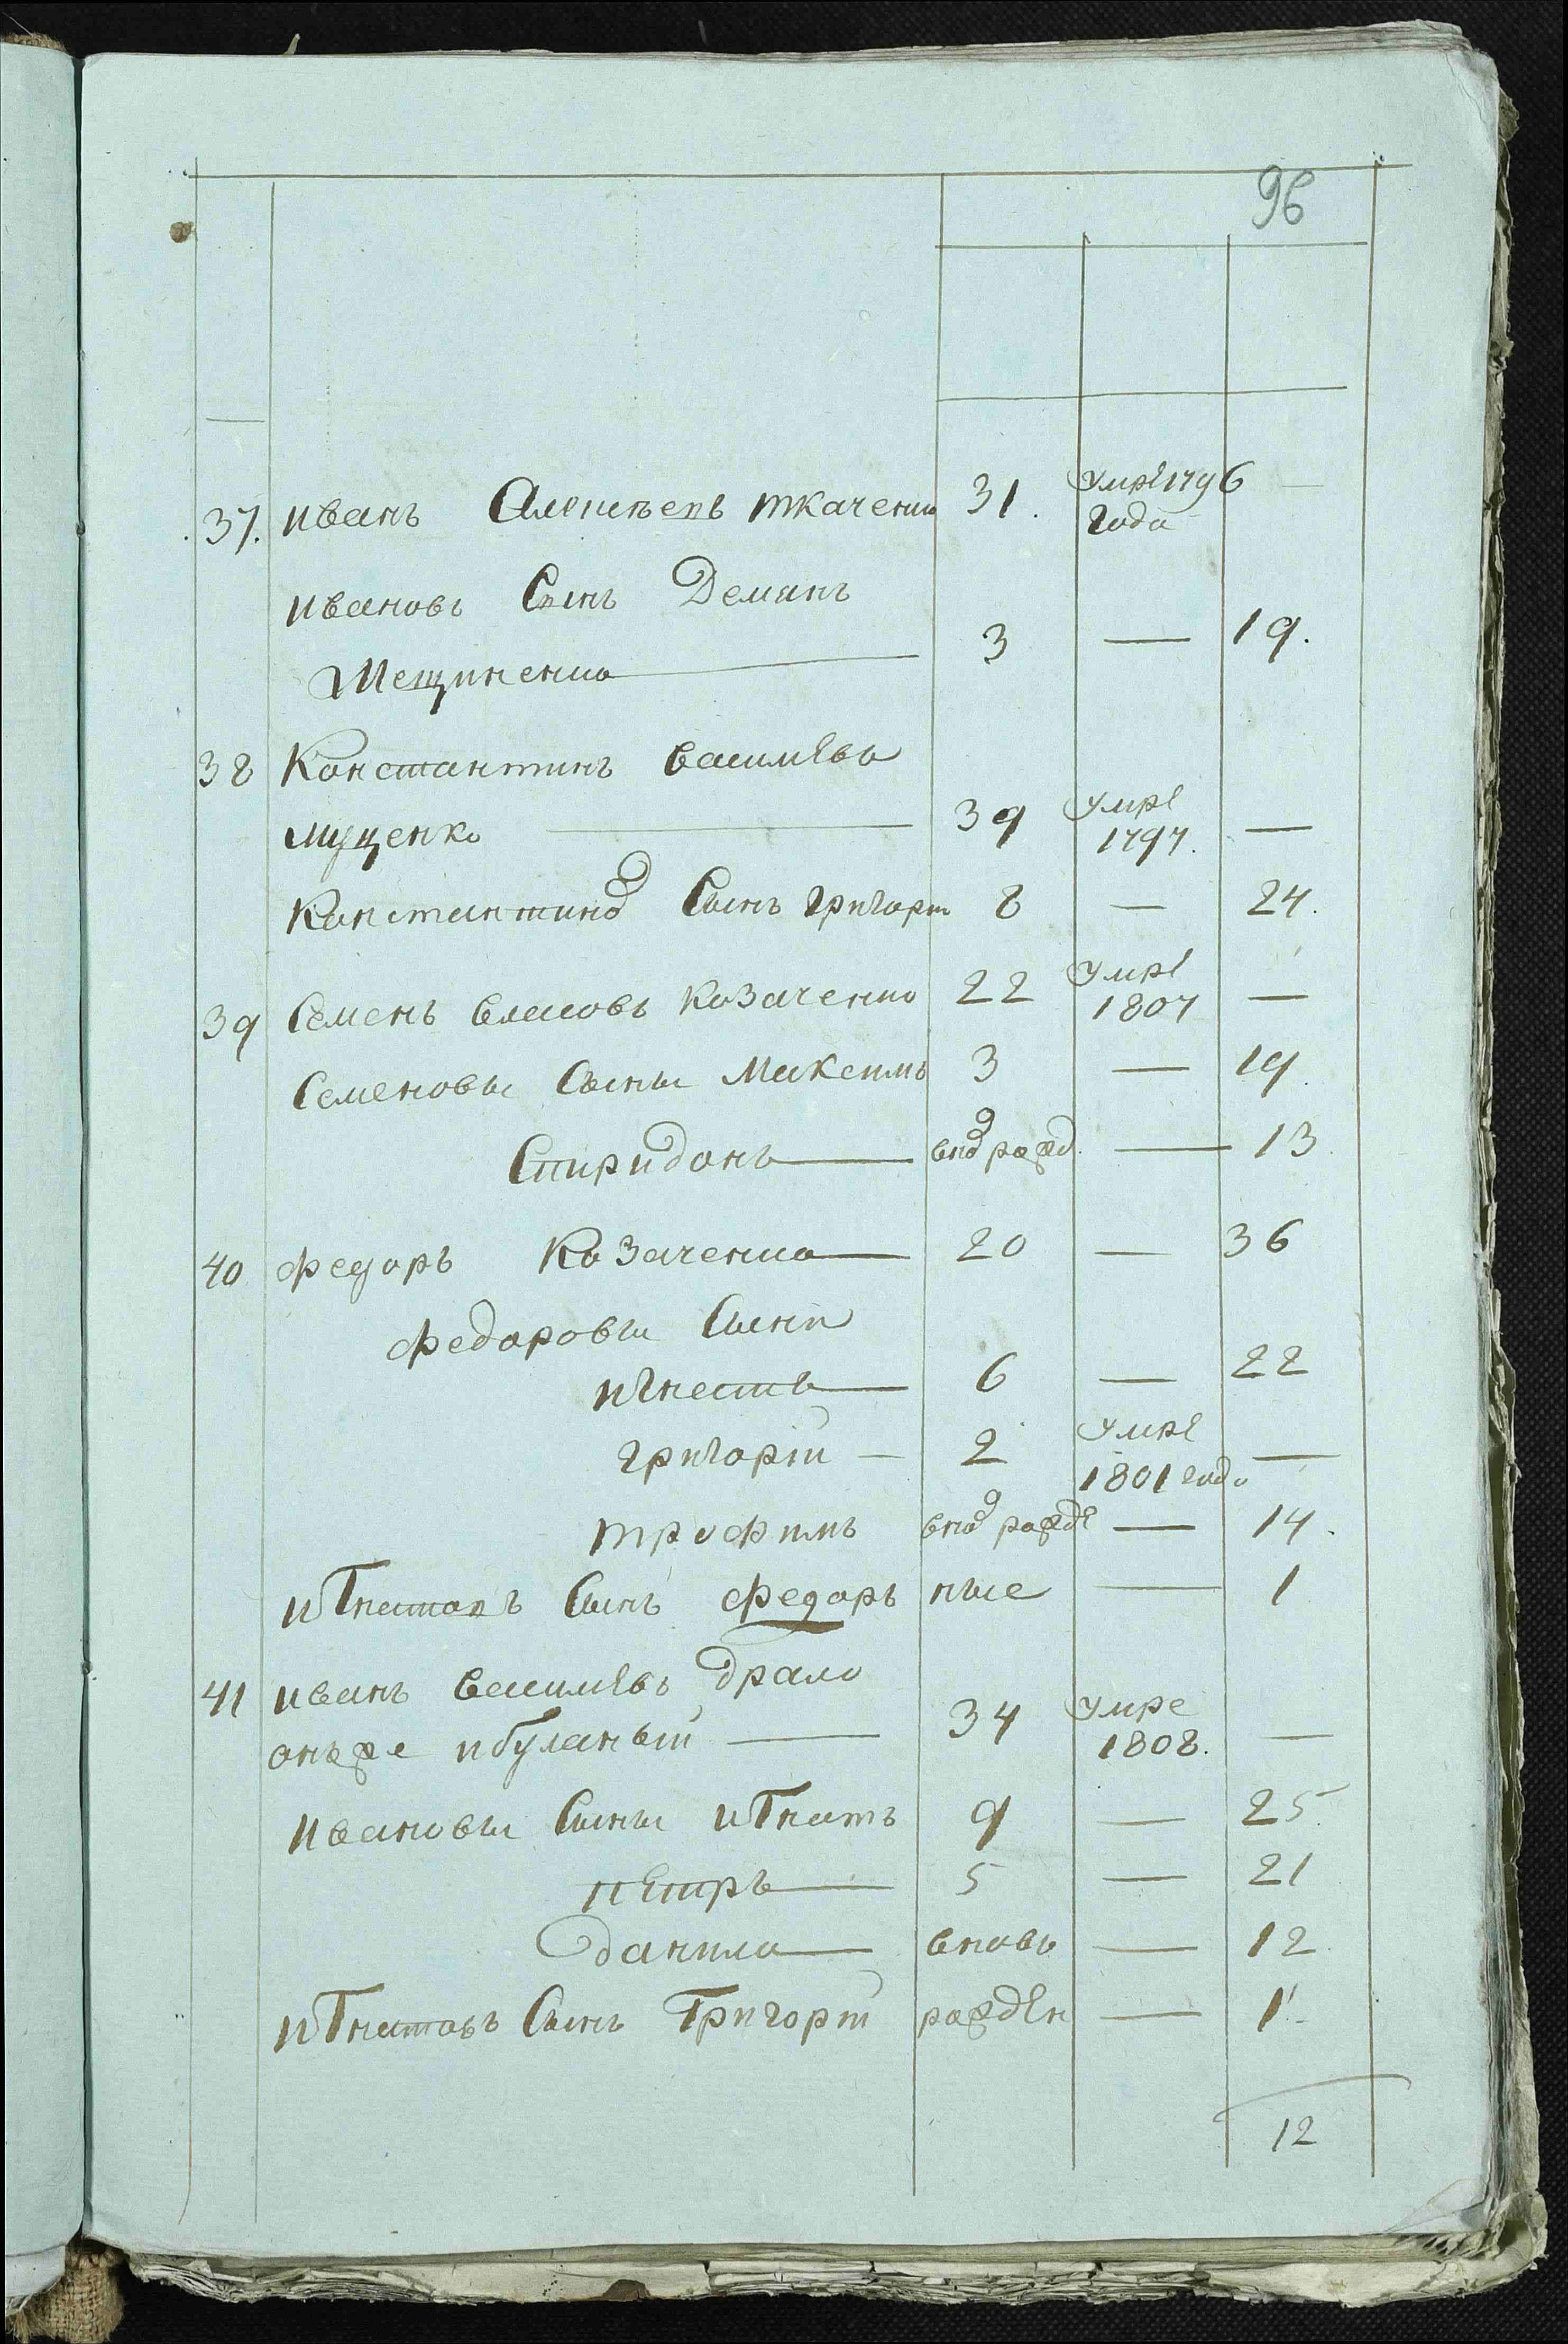 96
37. иванъ Алексѣевъ ткаченко 31. умре 1796 —
года
ивановъ Сынъ Деманъ
Мещиненко — 3 — 19.
38 Константинъ василевъ
мищенко — 39 умре 1797. —
Константинов Сынъ григори 8 — 24.
39 Семенъ власовъ козаченко 22 умре 1807 —
Семеновы Сыны Максимъ 3 — 19.
Спиридонъ — внов рожд. — 13.
40 федоръ Козаченко — 20 — 36
федоровы Сыни
игнатъ — 6 — 22
григорій — 2 умре 1801 года —
трофимъ внов рожде — 14.
игнатовъ Сынъ федоръ ные — 1
41 иванъ василевъ драло
онъже и буланый — 34 умре 1808. —
ивановы Сыны игнатъ 9 — 25.
петръ — 5 — 21
данило — вновь — 12.
игнатовъ Сынъ Григорій рожден — 1.
12